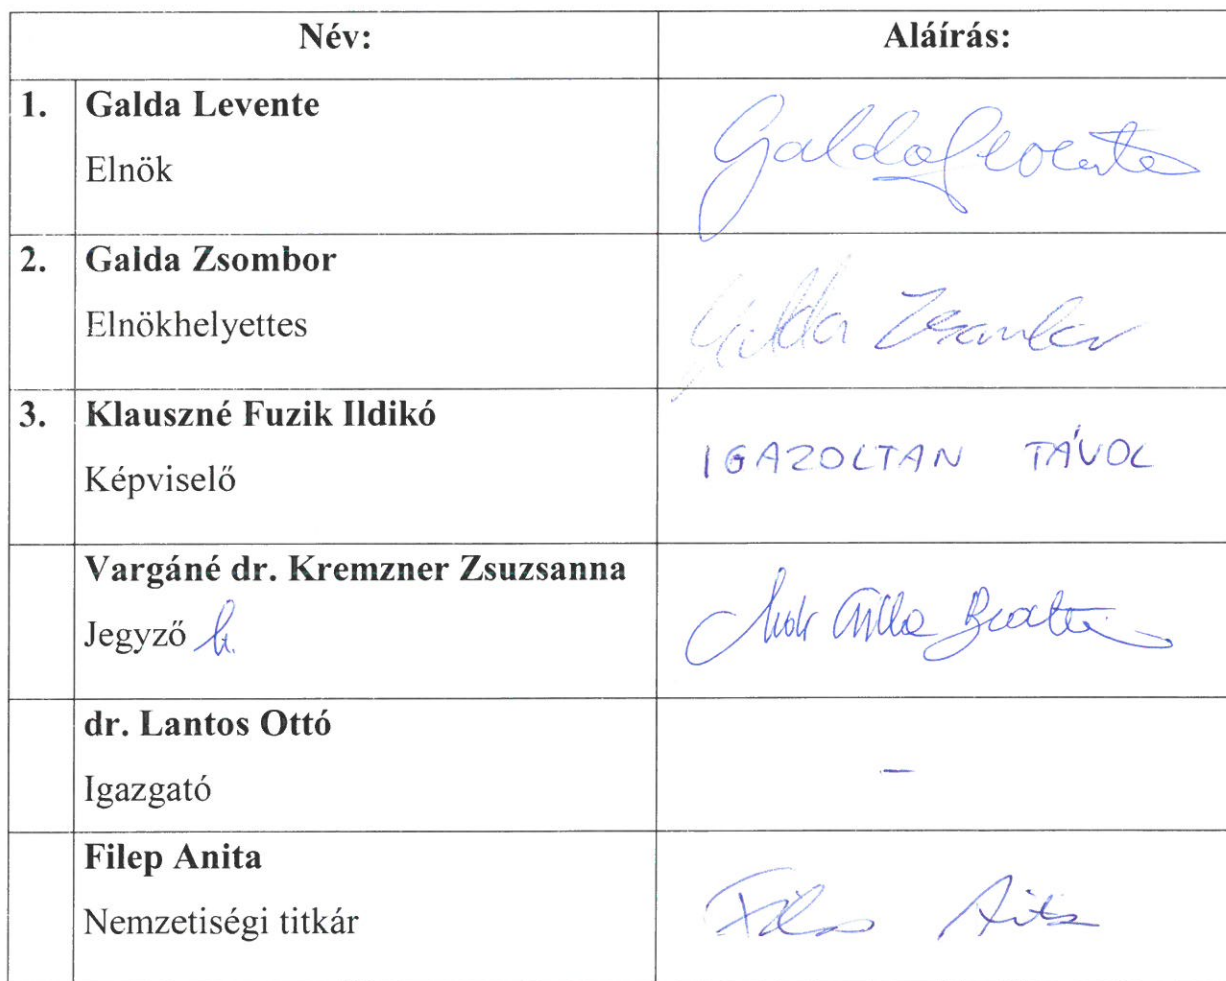 Név: Aláírás:
1. Galda Levente
Elnök
Galda Levente
2. Galda Zsombor
Elnökhelyettes
Galda Zsombor
3. Klauszné Fuzik Ildikó
Képviselő
IGAZOLTAN TÁVOL
Vargáné dr. Kremzner Zsuzsanna
Jegyző h.
Csilla Beata
dr. Lantos Ottó
Igazgató
-
Filep Anita
Nemzetiségi titkár
Filep Anita